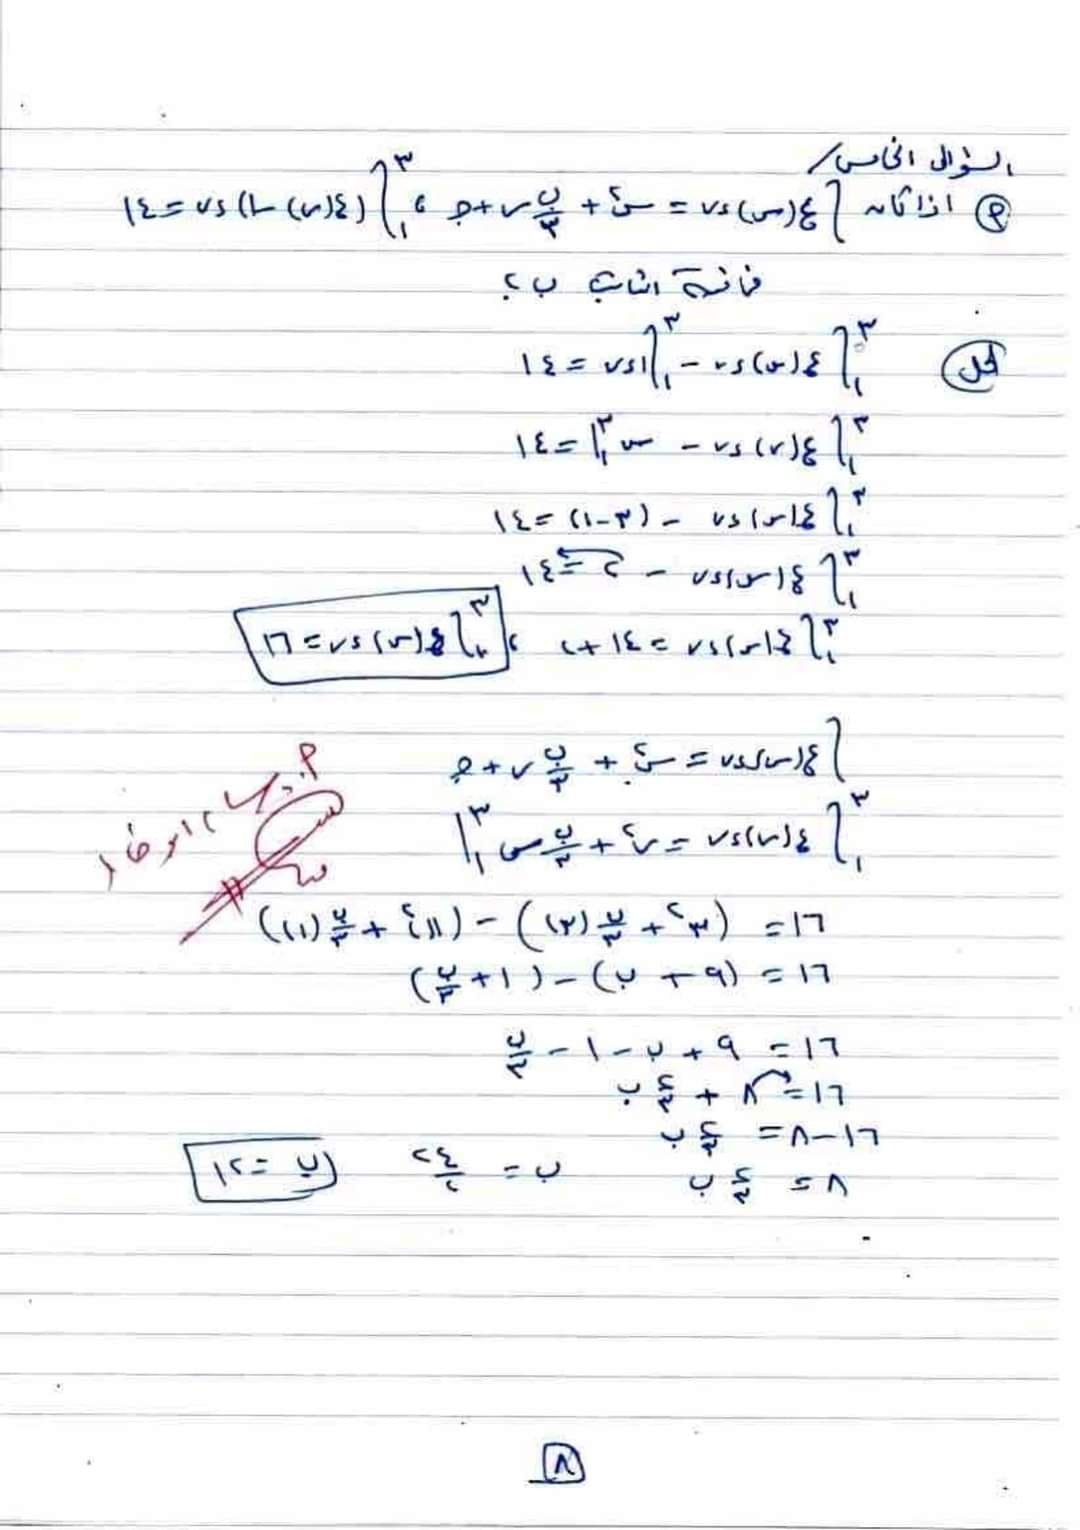 السؤال الخامس/
(P) اذا كان ∫ع(س)ءس = س٢ + ب/٣ س + جـ ، ∫١^٣ (ع(س) - ١)ءس = ١٤
فما قيمة الثابت ب ؟
الحل
∫١^٣ ع(س)ءس - ∫١^٣ ١ءس = ١٤
∫١^٣ ع(س)ءس - س|١^٣ = ١٤
∫١^٣ ع(س)ءس - (٣-١) = ١٤
∫١^٣ ع(س)ءس - ٢ = ١٤
∫١^٣ ع(س)ءس = ١٤+٢ ، ∫١^٣ ع(س)ءس = ١٦
∫ع(س)ءس = س٢ + ب/٣ س + جـ
∫١^٣ ع(س)ءس = س٢ + ب/٣ س |١^٣
١٦ = (٣٢ + ب/٣ (٣)) - ((١)٢ + ب/٣ (١))
١٦ = (٩ + ب) - (١ + ب/٣)
١٦ = ٩ + ب - ١ - ب/٣
١٦ = ٨ + ٢/٣ ب
١٦-٨ = ٢/٣ ب
٨ = ٢/٣ ب
ب = ٢٤/٢
ب = ١٢
٨